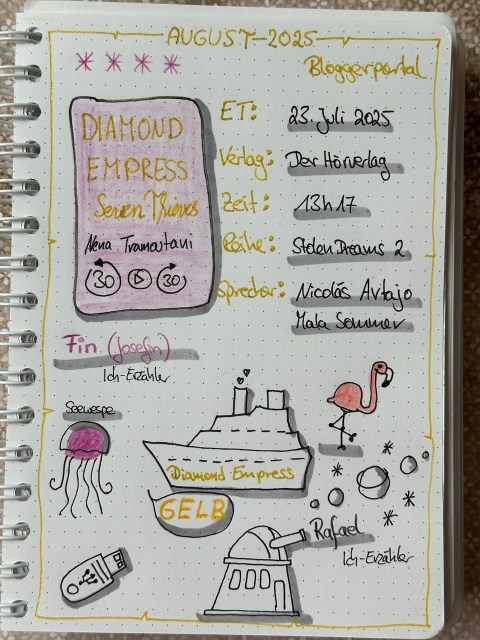 AUGUST-2025
Bloggerportal
DIAMOND
EMPRESS
Seven Thieves
Nena Tramontani
30 30
ET: 23. Juli 2025
Verlag: Der Hörverlag
Zeit: 13h17
Reihe: Stolen Dreams 2
Sprecher: Nicolás Artajo
Mala Sommer
Fin (Josefin)
Ich-Erzähler
Seewespe
Diamond Empress
GELB
Rafael
Ich-Erzähler